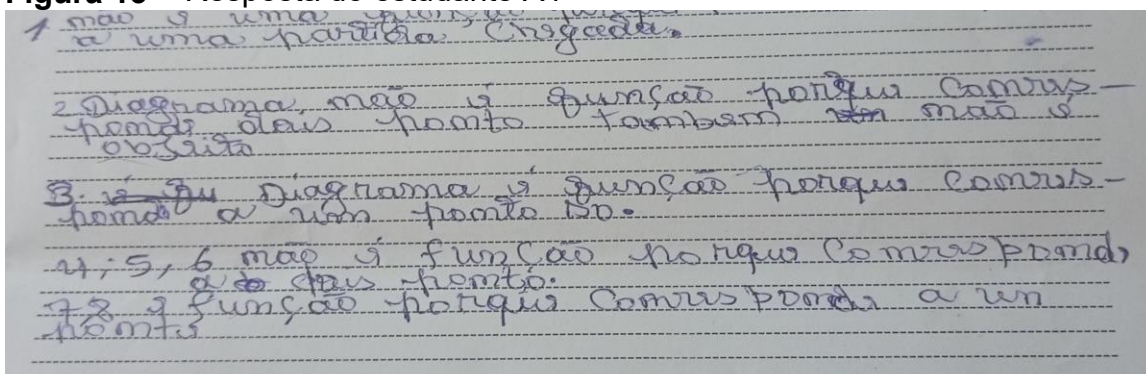 1 não é uma função
a uma partida Chegada.
2 Diagrama não é função porque Comrres-
ponde dois ponto tambem não é
objeito
3. Diagrama é função porque Comrres-
ponde a um ponto só.
4, 5, 6 não é função porque Comrresponde
a dois ponto.
7 8 é função porque Comrresponde a un
ponto